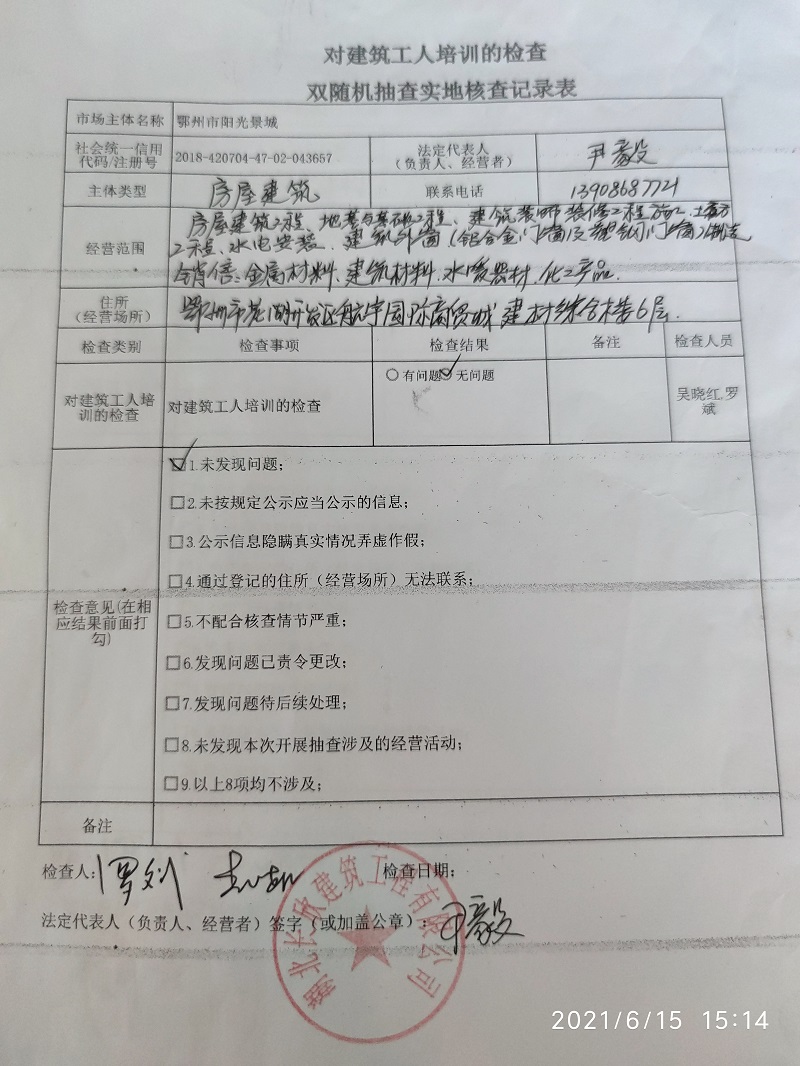 对建筑工人培训的检查
双随机抽查实地核查记录表
市场主体名称 鄂州市阳光景城
社会统一信用代码/注册号 2018-420704-47-02-043657 法定代表人（负责人、经营者） 尹毅
主体类型 房屋建筑 联系电话 13908687721
经营范围 房屋建筑工程、地基与基础工程、建筑装饰装修工程施工、土石方
工程、水电安装、建筑外窗（铝合金门窗及塑钢门窗）制造
销售：金属材料、建筑材料、水暖器材、化工产品.
住所（经营场所） 鄂州市花湖开发区航宇国际商贸城建材综合楼6层.
检查类别 检查事项 检查结果 备注 检查人员
对建筑工人培训的检查 对建筑工人培训的检查 有问题 无问题 吴晓红,罗斌
检查意见(在相应结果前面打勾)
1.未发现问题；
2.未按规定公示应当公示的信息；
3.公示信息隐瞒真实情况弄虚作假；
4.通过登记的住所（经营场所）无法联系；
5.不配合核查情节严重；
6.发现问题已责令更改；
7.发现问题待后续处理；
8.未发现本次开展抽查涉及的经营活动；
9.以上8项均不涉及；
备注
检查人： 检查日期：
法定代表人（负责人、经营者）签字（或加盖公章）：尹毅
湖北长欣建筑工程有限公司
2021/6/15 15:14